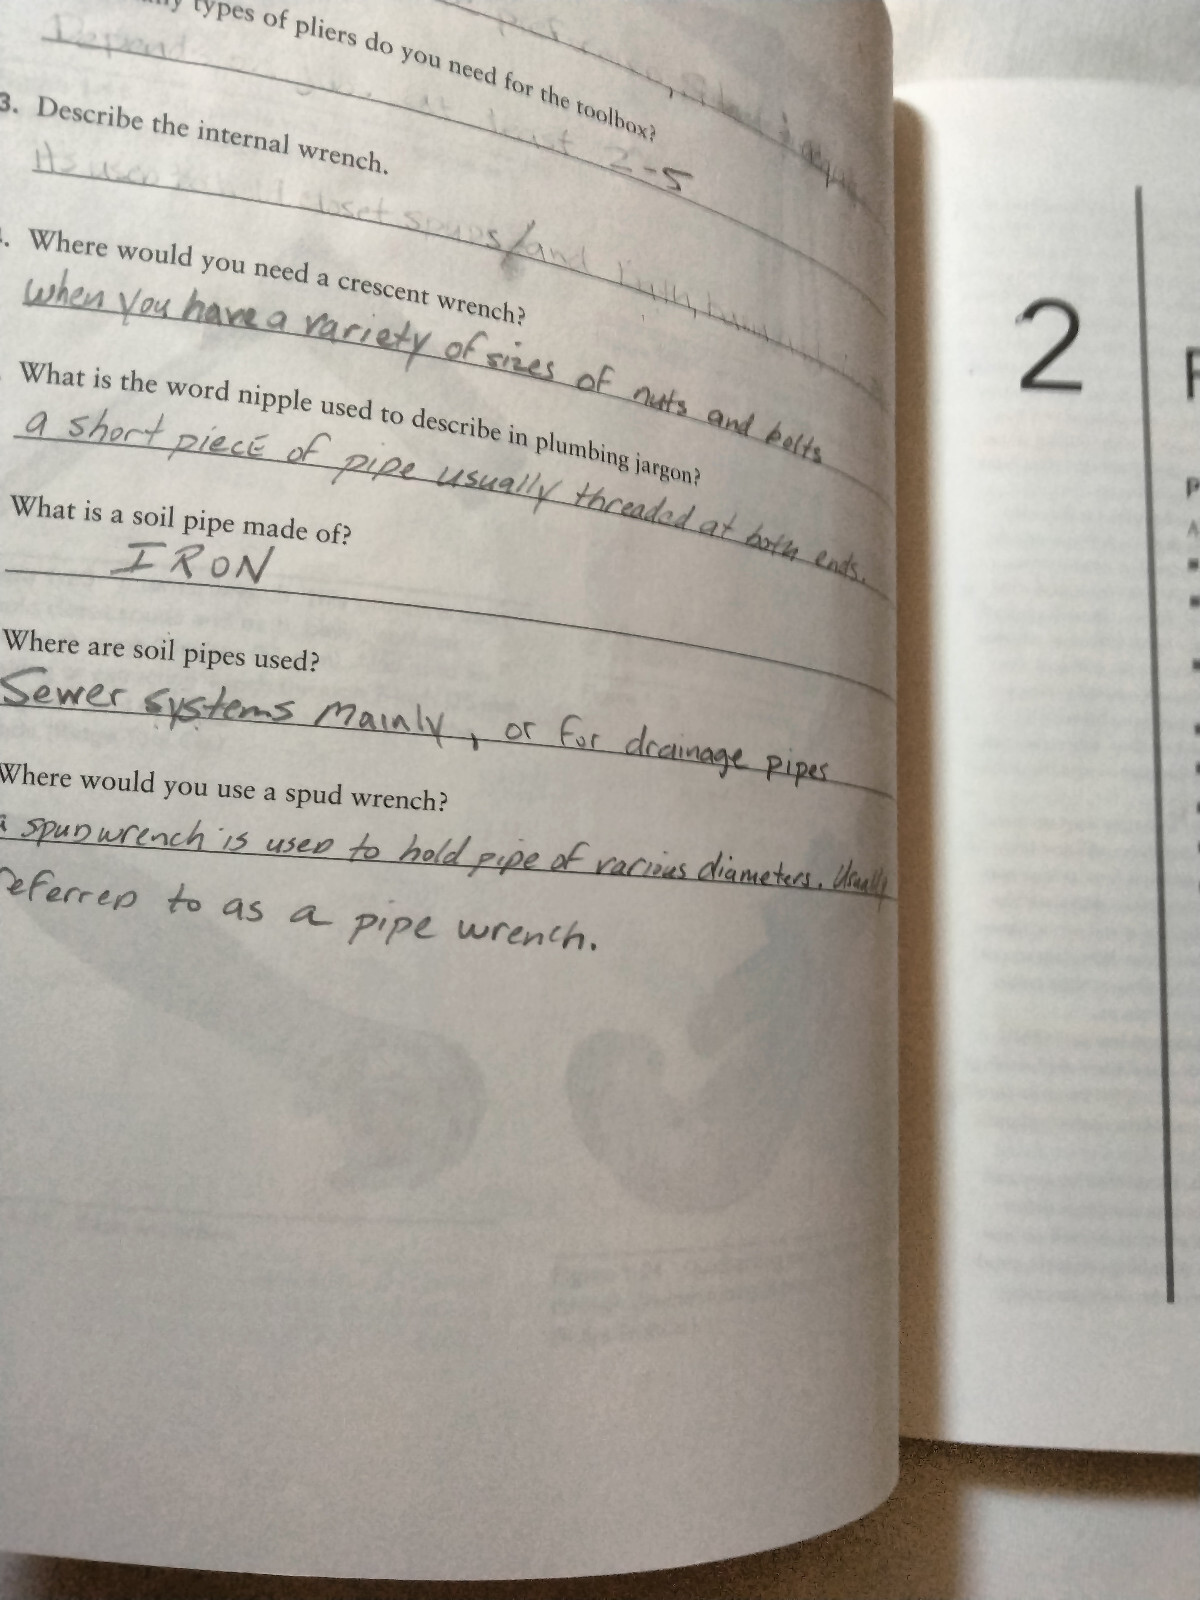 types of pliers do you need for the toolbox?
Depend at least 2-5
3. Describe the internal wrench.
Its used closet spuds/and
. Where would you need a crescent wrench?
when you have a variety of sizes of nuts and bolts
What is the word nipple used to describe in plumbing jargon?
a short piece of pipe usually threaded at both ends.
What is a soil pipe made of?
IRON
Where are soil pipes used?
Sewer systems mainly, or for drainage pipes
Where would you use a spud wrench?
a spud wrench is used to hold pipe of various diameters. Usually
referred to as a pipe wrench.
2
P
A